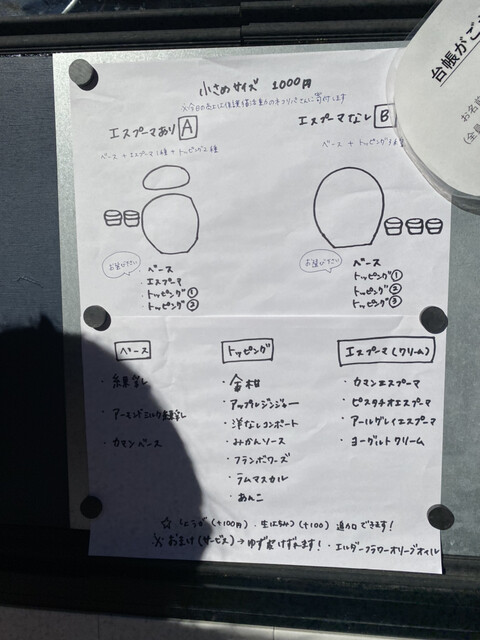 小さめサイズ 1000円
エスプーマあり A
ベース + エスプーマ1種 + トッピング2種
お選び下さい
・ベース
・エスプーマ
・トッピング①
・トッピング②
エスプーマなし B
ベース + トッピング3
お選び下さい
・ベース
・トッピング①
・トッピング②
・トッピング③
ベース
・練乳
・アーモンドミルク練乳
・カマンベース
トッピング
・金柑
・アップルジンジャー
・洋なしコンポート
・みかんソース
・フランボワーズ
・ラムマスカル
・あんこ
エスプーマ(クリーム)
・カマンエスプーマ
・ピスタチオエスプーマ
・アールグレイエスプーマ
・ヨーグルトクリーム
☆ (+100円)・生はちみつ (+100) 追加できます!
※ おまけ(サービス)→ ゆず皮けずれます!・エルダーフラワーオリーブオイル
台帳がご
お名前